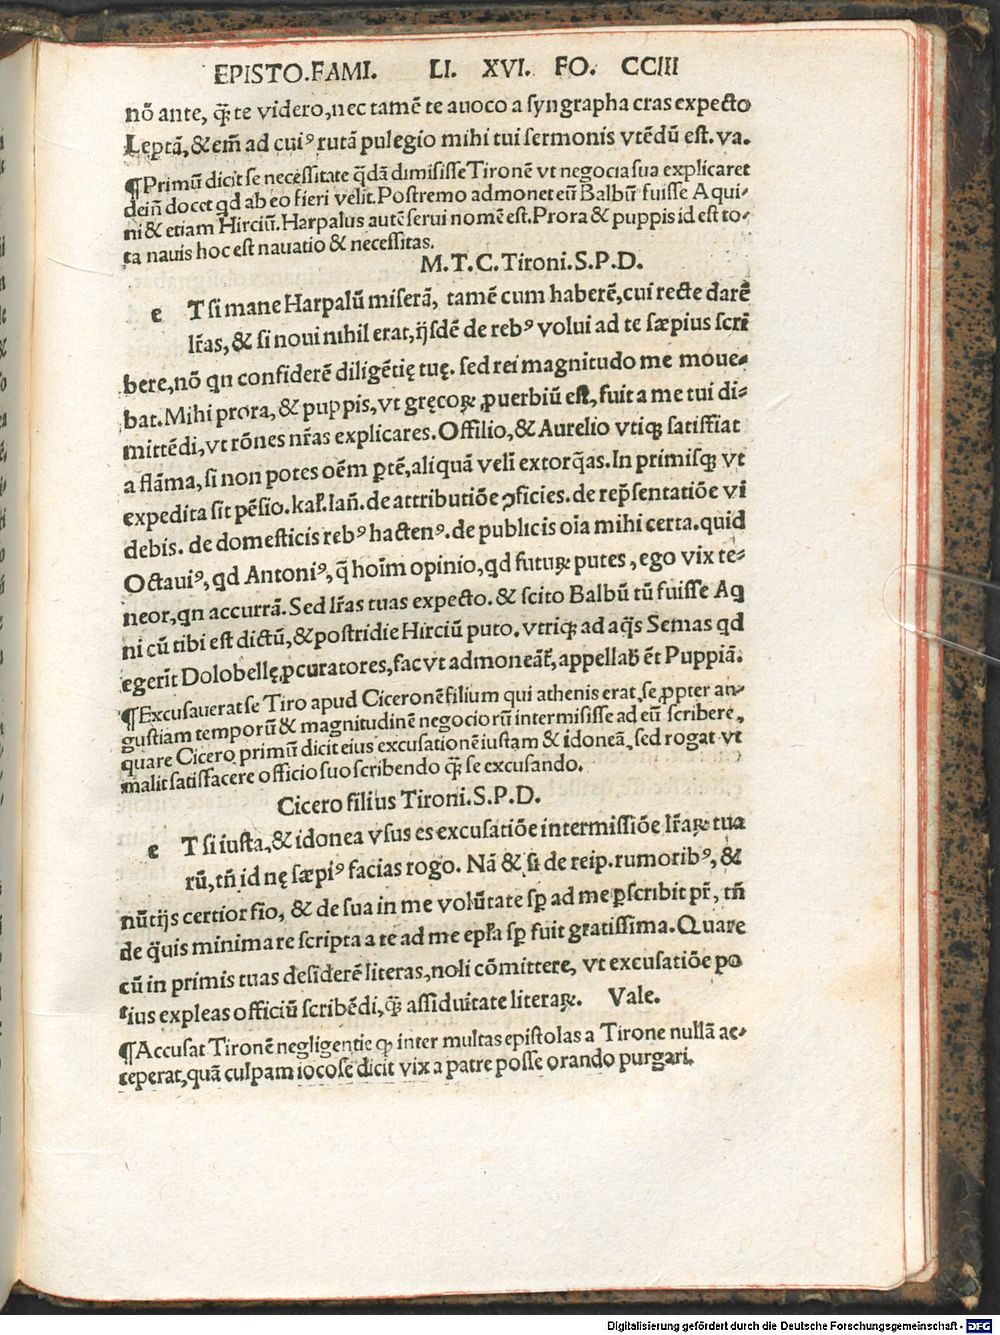 EPISTO.FAMI. LI. XVI. FO. CCIII
nõ ante, q̃ȝ te videro,nec tamẽ te auoco a syngrapha cras expecto
Leptã,&em̃ ad cuiꝰ rutã pulegio mihi tui sermonis vtẽdũ est. va.
¶Primũ dicit se necessitate q̃dã dimisisse Tironẽ vt negocia sua explicaret
dein̄ docet qd ab eo fieri velit.Postremo admonet eũ Balbũ fuisse Aqui-
ni & etiam Hirciũ.Harpalus autẽ serui nomẽ est.Prora & puppis id est to-
ta nauis hoc est nauatio & necessitas.
M.T.C.Tironi.S.P.D.
e T si mane Harpalũ miserã, tamẽ cum haberẽ,cui recte darẽ
lr̃as,& si noui nihil erat,ijsdẽ de rebꝰ volui ad te sæpius scri
bere,nõ qn confiderẽ diligẽtię tuę. sed rei magnitudo me moue-
bat.Mihi prora,& puppis,vt gręcoꝝ ꝓuerbiũ est,fuit a me tui di-
mittẽdi,vt rõnes nr̃as explicares.Offilio,& Aurelio vtiqꝫ satisfiat
a flãma,si non potes oẽm ptẽ,aliquã veli extorq̃as.In primisqꝫ vt
expedita sit pẽsio.kal̃.Ian̄.de attributiõe ꝯficies.de rep̃sentatiõe vi
debis. de domesticis rebꝰ hactenꝰ.de publicis oia mihi certa.quid
Octauiꝰ,qd Antoniꝰ,q̃ hoĩm opinio,qd futuꝝ putes,ego vix te-
neor,qn accurrã.Sed lr̃as tuas expecto.& scito Balbũ tũ fuisse Aq
ni cũ tibi est dictũ,&postridie Hirciũ puto.vtriqꝫ ad aq̃s Semas qd
egerĩt Dolobellę ꝓcuratores,fac vt admoneãt̃,appellab̃ ẽt Puppiã.
¶Excusauerat se Tiro apud Ciceronẽ filium qui athenis erat,se ꝓpter an-
gustiam temporũ & magnitudinẽ negociorũ intermisisse ad eũ scribere,
quare Cicero primũ dicit eius excusationẽ iustam & idoneã,sed rogat vt
malit satisfacere officio suo scribendo q̃ȝ se excusando.
Cicero filius Tironi.S.P.D.
e T si iusta,& idonea vsus es excusatiõe intermissiõe lr̃aꝝ tua
rũ,tñ id nę sæpiꝰ facias rogo. Nã & si de reip.rumoribꝰ,&
nũtijs certior fio, & de sua in me volũtate sp̱ ad me ꝑscribit pr̃, tñ
de q̃uis minima re scripta a te ad me epl̃a sp̱ fuit gratissima.Quare
cũ in primis tuas desiderẽ literas,noli cõmittere, vt excusatiõe po
tius expleas officiũ scribẽdi,q̃ȝ assiduitate literaꝝ. Vale.
¶Accusat Tironẽ negligentie qꝫ inter multas epistolas a Tirone nullã ac-
ceperat,quã culpam iocose dicit vix a patre posse orando purgari.
Digitalisierung gefördert durch die Deutsche Forschungsgemeinschaft - DFG